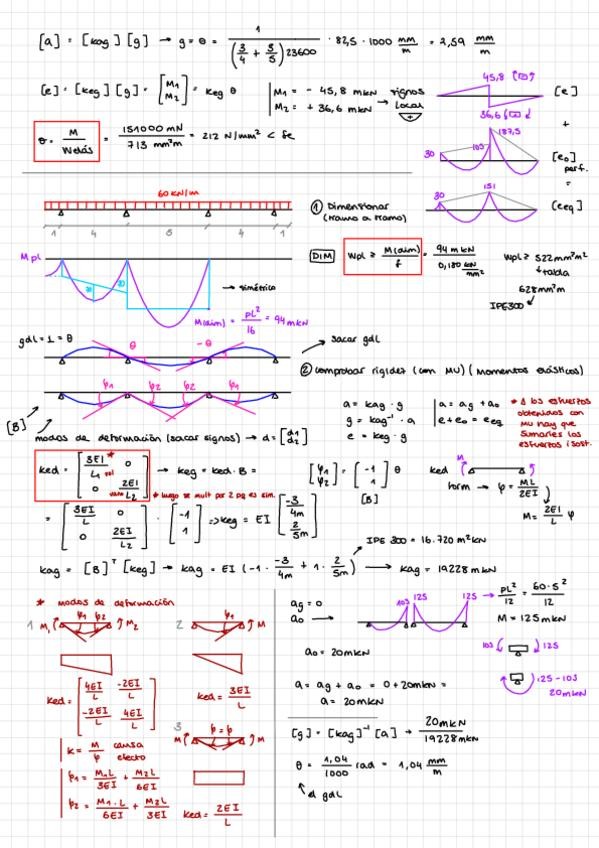 [a] = [kag] [g] → g = θ = 1 / ((3/4 + 3/5) 23600) · 82,5 · 1000 mm/m = 2,59 mm/m
[e] = [keg] [g] = [M1 M2] = keg θ
M1 = - 45,8 mkN → signos
M2 = + 36,6 mkN local
+
45,8
36,6
[e]
+
θ = M / Welás = 151000 mN / 713 mm²m = 212 N/mm² < fe
30
103
187,5
[eo] perf.
=
30
151
[eeq]
60 kN/m
1 4 5 4 1
① Dimensionar
(tramo a tramo)
Mpl
→ simétrico
M(dim) = pL²/16 = 94 mkN
DIM
Wpl ≥ M(dim) / f = 94 mkN / 0,180 kN/mm²
Wpl ≥ 522 mm²m
↓ tabla
628 mm²m
IPE300
gdl = 1 = θ
θ -θ
→ sacar gdl
② comprobar rigidez (con MV) (Momentos elásticos)
φ1 φ2 φ2 φ1
[B]
modos de deformación (sacar signos) → d = [d1 d2]
a = kag · g
g = kag⁻¹ · a
e = keg · g
a = ag + ao
e + eo = eeq
* A los esfuerzos
obtenidos con
MV hay que
sumarles los
esfuerzos isost.
ked = [3EI/L1 0 0 2EI/L2] → keg = ked · B =
* luego se mult por 2 pq es sim.
[φ1 φ2] = [-1 1] θ
[B]
ked
M
form → φ = ML/2EI
M = 2EI/L φ
= [3EI/L 0 0 2EI/L2] · [-1 1] ⇒ keg = EI [-3/4m 2/5m]
IPE 300 = 16.720 m²kN
kag = [B]ᵀ [keg] → kag = EI (-1 · -3/4m + 1 · 2/5m) → kag = 19228 mkN
* modos de deformación
1 M1 φ1 φ2 M2
2 φ1 M
ked = [4EI/L -2EI/L -2EI/L 4EI/L]
ked = 3EI/L
k = M/φ causa efecto
φ1 = M1L/3EI + M2L/6EI
φ2 = M1·L/6EI + M2L/3EI
3
M φ = φ M
ked = 2EI/L
ag = 0
ao
105 125 125
→ pL²/12 = 60·5²/12
M = 125 mkN
105 125
125 - 105
20 mkN
ao = 20 mkN
a = ag + ao = 0 + 20 mkN =
a = 20 mkN
[g] = [kag]⁻¹ [a] → 20 mkN / 19228 mkN
θ = 1,04/1000 rad = 1,04 mm/m
el gdl